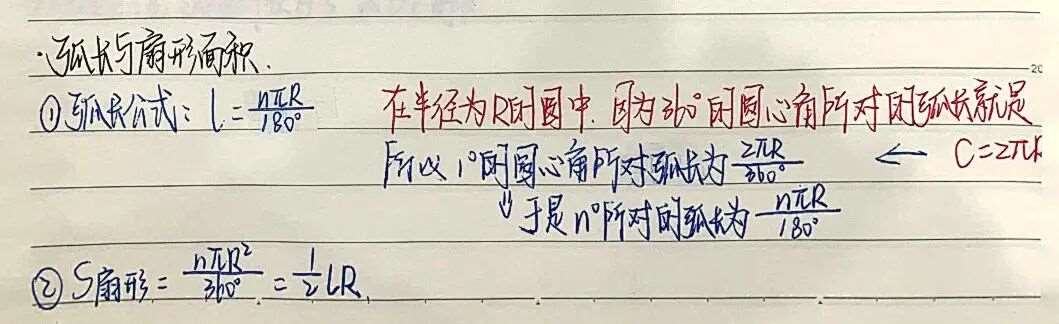 ·弧长与扇形面积.
①弧长公式: l = nπR/180° 在半径为R的圆中.因为360°的圆心角所对的弧长就是
C=2πR
所以1°的圆心角所对弧长为 2πR/360° ←
⇓于是n°所对的弧长为 nπR/180°
② S扇形 = nπR²/360° = 1/2 LR.
20